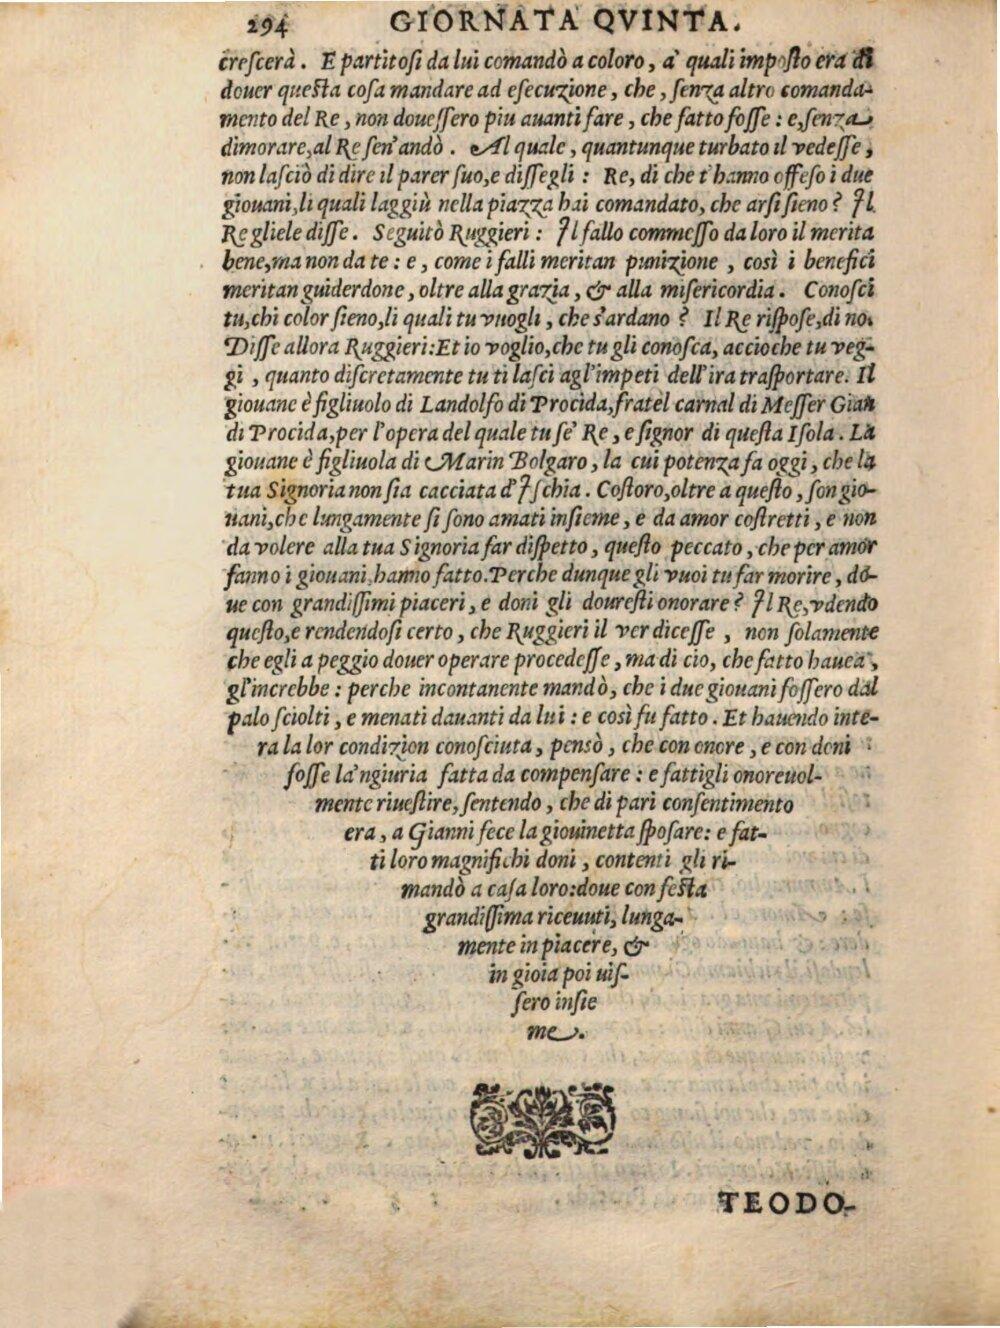 294 GIORNATA QVINTA.
creſcerà. E partitoſi da lui comandò a coloro, a' quali impoſto era di
douer queſta coſa mandare ad eſecuzione, che, ſenza altro comanda-
mento del Re, non doueſſero piu auanti fare, che fatto foſſe: e, ſenza
dimorare, al Re ſen'andò. Al quale, quantunque turbato il vedeſſe,
non laſciò di dire il parer ſuo, e diſſegli: Re, di che t'hanno offeſo i due
giouani, li quali laggiù nella piazza hai comandato, che arſi ſieno? Il
Re gliele diſſe. Seguitò Ruggieri: Il fallo commeſſo da loro il merita
bene, ma non da te: e, come i falli meritan punizione, così i benefici
meritan guiderdone, oltre alla grazia, & alla miſericordia. Conoſci
tu, chi color ſieno, li quali tu vuogli, che s'ardano? Il Re riſpoſe, di no.
Diſſe allora Ruggieri: Et io voglio, che tu gli conoſca, accioche tu veg-
gi, quanto diſcretamente tu ti laſci agl'impeti dell'ira traſportare. Il
giouane è figliuolo di Landolfo di Procida, fratel carnal di Meſſer Gian
di Procida, per l'opera del quale tu ſe' Re, e ſignor di queſta Iſola. La
giouane è figliuola di Marin Bolgaro, la cui potenza fa oggi, che la
tua Signoria non ſia cacciata d'Iſchia. Coſtoro, oltre a queſto, ſon gio-
uani, che lungamente ſi ſono amati inſieme, e da amor coſtretti, e non
da volere alla tua Signoria far diſpetto, queſto peccato, che per amor
fanno i giouani, hanno fatto. Perche dunque gli vuoi tu far morire, do-
ue con grandiſſimi piaceri, e doni gli doureſti onorare? Il Re, vdendo
queſto, e rendendoſi certo, che Ruggieri il ver diceſſe, non ſolamente
che egli a peggio douer operare procedeſſe, ma di cio, che fatto hauea,
gl'increbbe: perche incontanente mandò, che i due giouani foſſero dal
palo ſciolti, e menati dauanti da lui: e così fu fatto. Et hauendo inte-
ra la lor condizion conoſciuta, pensò, che con onore, e con doni
foſſe la'ngiuria fatta da compenſare: e fattigli onoreuol-
mente riueſtire, ſentendo, che di pari conſentimento
era, a Gianni fece la giouinetta ſpoſare: e fat-
ti loro magnifichi doni, contenti gli ri-
mandò a caſa loro: doue con feſta
grandiſſima riceuuti, lunga-
mente in piacere, &
in gioia poi uiſ-
ſero inſie
me.
TEODO-